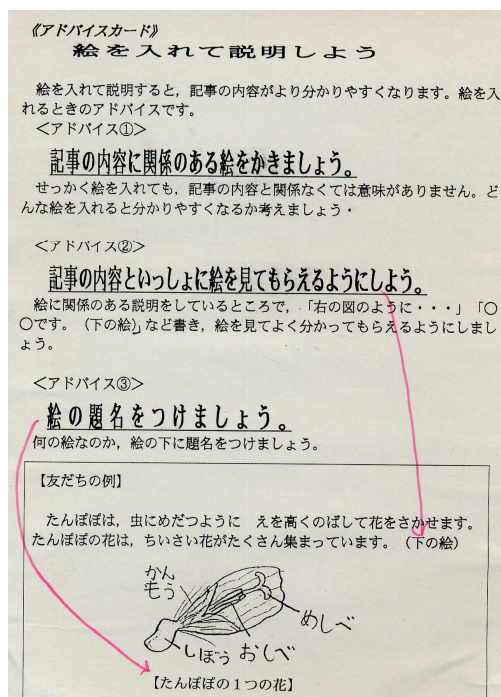 《アドバイスカード》
絵を入れて説明しよう
絵を入れて説明すると，記事の内容がより分かりやすくなります。絵を入
れるときのアドバイスです。
＜アドバイス①＞
記事の内容に関係のある絵をかきましょう。
せっかく絵を入れても，記事の内容と関係なくては意味がありません。ど
んな絵を入れると分かりやすくなるか考えましょう・
＜アドバイス②＞
記事の内容といっしょに絵を見てもらえるようにしよう。
絵に関係のある説明をしているところで，「右の図のように・・・」「○
○です。（下の絵）」など書き，絵を見てよく分かってもらえるようにしまし
ょう。
＜アドバイス③＞
絵の題名をつけましょう。
何の絵なのか，絵の下に題名をつけましょう。
【友だちの例】
たんぽぽは，虫にめだつように　えを高くのばして花をさかせます。
たんぽぽの花は，ちいさい花がたくさん集まっています。（下の絵）
かん
もう
めしべ
しぼう おしべ
【たんぽぽの１つの花】